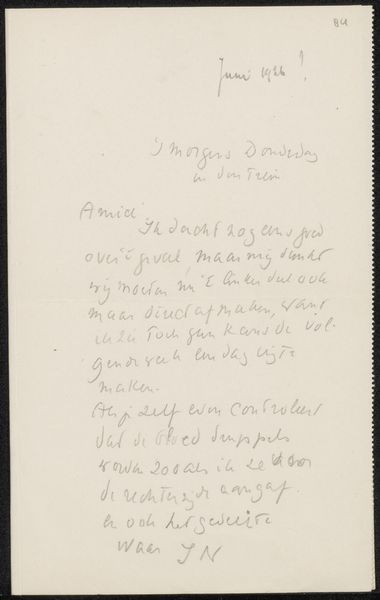 84
Juni 1926!
'S morgens Donderdag
in den Trein
Amice
Ik dacht nog eens goed
over 't geval, maar mij dunkt
wij moeten nu 't linker deel ook
maar direct afmaken, want
ik zie toch geen kans de vol-
gende week een dag vrij te
maken.
Als je zelf even controleert
dat de bloed druppels
worden zooals ik ze voor
de rechterzijde aangaf.
en ook het gedeelte
waar J N